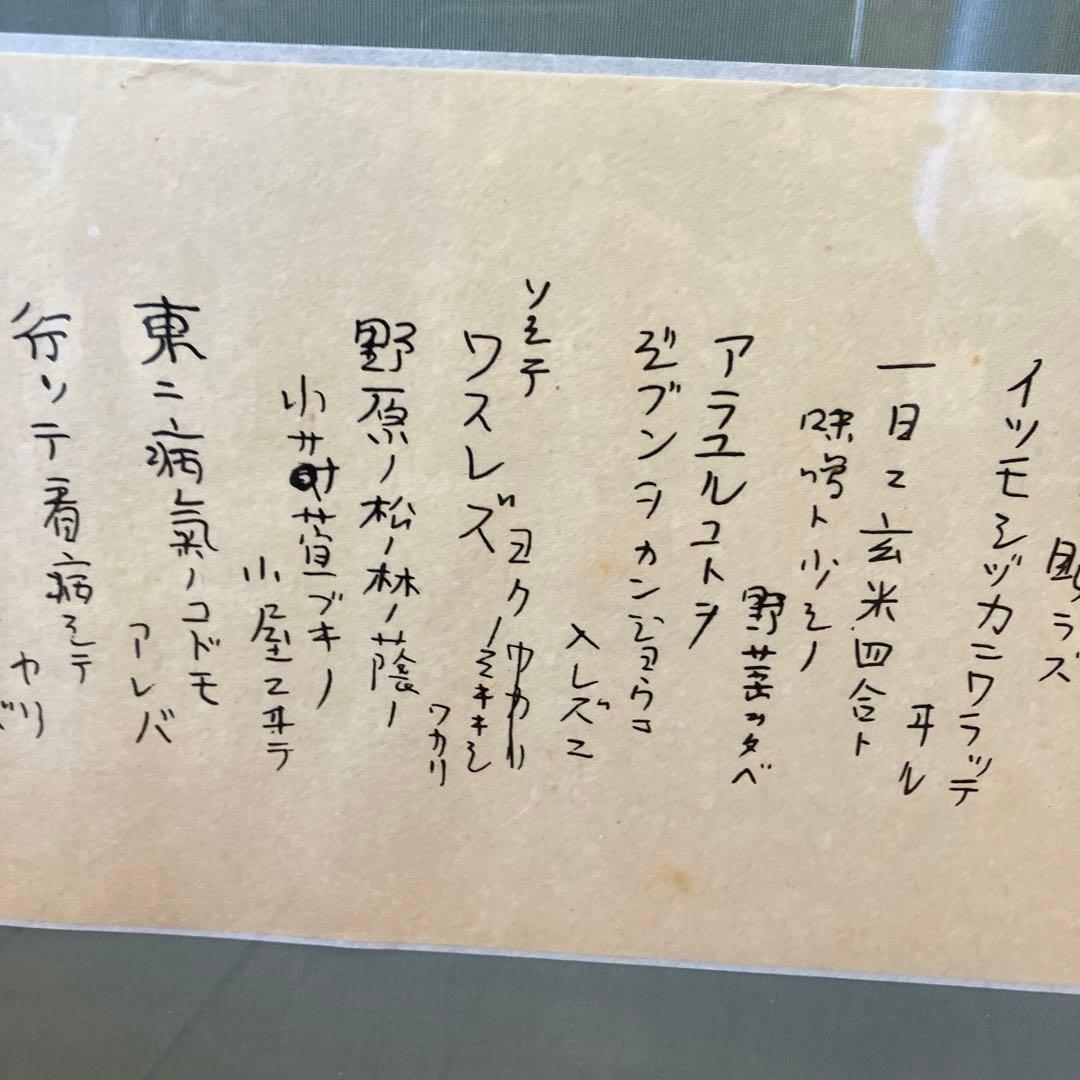 瞋ラズ
イツモシヅカニワラッテ
ヰル
一日ニ玄米四合ト
味噌ト少シノ
野菜ヲタベ
アラユルコトヲ
ジブンヲカンジョウニ
入レズニ
ヨクミキキシワカリ
ソシテ
ワスレズ
野原ノ松ノ林ノ蔭ノ
小サナ萓ブキノ
小屋ニヰテ
東ニ病氣ノコドモ
アレバ
行ッテ看病シテ
ヤリ